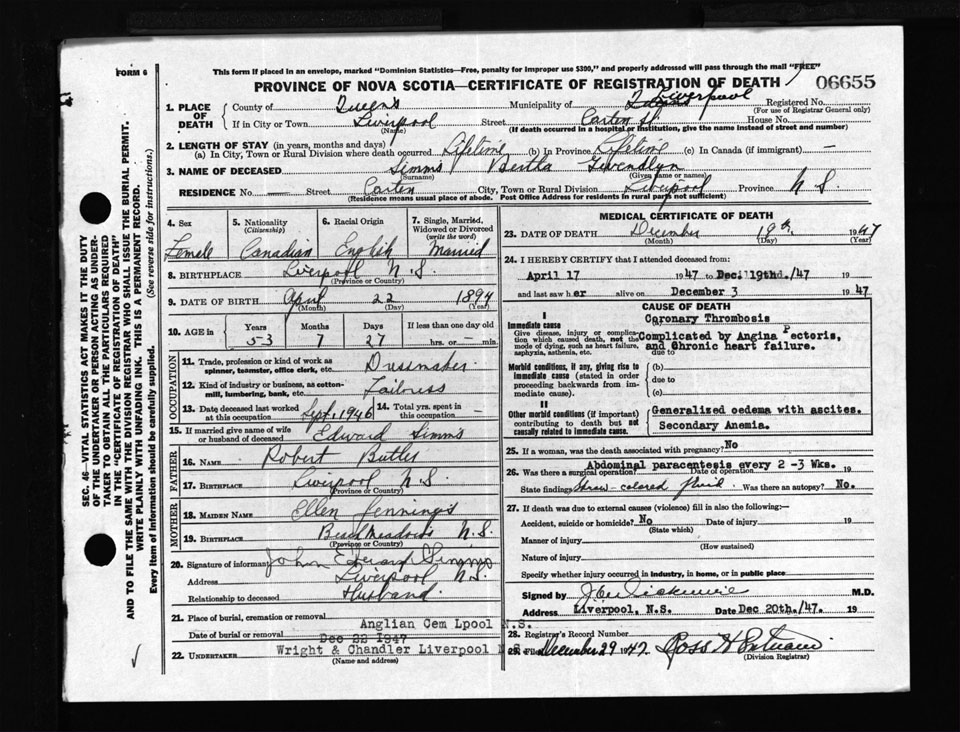 This form if placed in an envelope, marked "Dominion Statistics—Free, penalty for improper use $300," and properly addressed will pass through the mail "FREE"
FORM 6
PROVINCE OF NOVA SCOTIA—CERTIFICATE OF REGISTRATION OF DEATH
06655
1. PLACE OF DEATH County of Queens Municipality of Liverpool Registered No.
(For use of Registrar General only)
If in City or Town Liverpool Street Carten St. House No.
(Name) (If death occurred in a hospital or institution, give the name instead of street and number)
2. LENGTH OF STAY (in years, months and days)
(a) In City, Town or Rural Division where death occurred Lifetime (b) In Province Lifetime (c) In Canada (if immigrant) —
3. NAME OF DECEASED Simms Bertha Gwendlyn
(Surname) (Given name or names)
RESIDENCE No. — Street Carten City, Town or Rural Division Liverpool Province N.S.
(Residence means usual place of abode. Post Office Address for residents in rural parts not sufficient)
4. Sex 5. Nationality 6. Racial Origin 7. Single, Married, Widowed or Divorced
(Citizenship) (write the word)
Female Canadian English Married
8. BIRTHPLACE Liverpool N.S.
(Province or Country)
9. DATE OF BIRTH April 22 1894
(Month) (Day) (Year)
10. AGE in Years Months Days If less than one day old
53 7 27 hrs. or — min.
OCCUPATION
11. Trade, profession or kind of work as spinner, teamster, office clerk, etc. Dressmaker
12. Kind of industry or business, as cotton-mill, lumbering, bank, etc.
13. Date deceased last worked at this occupation Sept. 1946 14. Total yrs. spent in this occupation —
15. If married give name of wife or husband of deceased Edward Simms
FATHER
16. NAME Robert Butler
17. BIRTHPLACE Liverpool N.S.
(Province or Country)
MOTHER
18. MAIDEN NAME Ellen Jennings
19. BIRTHPLACE Beach Meadows N.S.
(Province or Country)
20. Signature of informant John Edward Simms
Address Liverpool N.S.
Relationship to deceased Husband
21. Place of burial, cremation or removal Anglian Cem Lpool N.S.
Date of burial or removal Dec 22 1947
22. UNDERTAKER Wright & Chandler Liverpool N.S.
(Name and address)
MEDICAL CERTIFICATE OF DEATH
23. DATE OF DEATH December 19th. 1947
(Month) (Day) (Year)
24. I HEREBY CERTIFY that I attended deceased from:
April 17 1947 to Dec. 19th./47 19
and last saw her alive on December 3 1947
CAUSE OF DEATH
I
Immediate cause Coronary Thrombosis
Give disease, injury or complication which caused death, not the mode of dying, such as heart failure, asphyxia, asthenia, etc.
Complicated by Angina Pectoris, and Chronic heart failure.
due to
Morbid conditions, if any, giving rise to immediate cause (stated in order proceeding backwards from immediate cause).
(b)
due to
(c)
II
Other morbid conditions (if important) contributing to death but not causally related to immediate cause.
Generalized oedema with ascites.
Secondary Anemia.
25. If a woman, was the death associated with pregnancy? No
26. Was there a surgical operation? Date of operation 19
Abdominal paracentesis every 2 -3 Wks.
State findings Straw-colored fluid Was there an autopsy? No.
27. If death was due to external causes (violence) fill in also the following:—
Accident, suicide or homicide? No Date of injury 19
(State which)
Manner of injury
(How sustained)
Nature of injury
Specify whether injury occurred in industry, in home, or in public place
Signed by M.D.
Address Liverpool, N.S. Date Dec 20th./47. 19
28. Registrar's Record Number
29. Filed December 29 1947 Ross
(Division Registrar)
SEC. 46—VITAL STATISTICS ACT MAKES IT THE DUTY
OF THE UNDERTAKER OR PERSON ACTING AS UNDER-
TAKER TO OBTAIN ALL THE PARTICULARS REQUIRED
IN THE "CERTIFICATE OF REGISTRATION OF DEATH"
AND TO FILE THE SAME WITH THE DIVISION REGISTRAR WHO SHALL ISSUE THE BURIAL PERMIT.
WRITE PLAINLY WITH UNFADING INK. THIS IS A PERMANENT RECORD.
Every item of information should be carefully supplied. (See reverse side for instructions.)